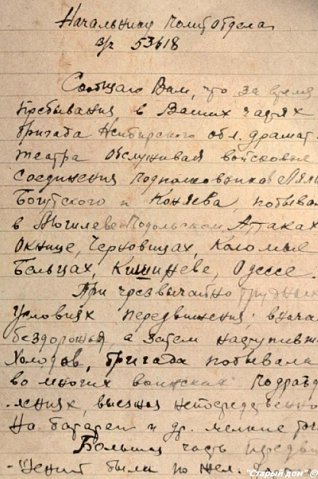 Начальнику политотдела
в/ч 53618
Сообщаю Вам, что за время
пребывания в Ваших частях
бригада Н-сибирского обл. драмат.
театра обслуживая войсковые
соединения подполковников
Богутского и Коняева, побывал
в Могилеве Подольском, Атаках
Окнице, Черновицах, Коломые
Бальцах, Кишиневе, Одессе.
При чрезвычайно трудных
условиях передвижения, внача
бездорожья, а затем наступивш
холодов, бригада побывала
во многих воинских подразд
лениях, выезжая непосредственно
на батареи и др. мелкие
Большая часть передви
-жений были по жел.
"Старый дом" ©